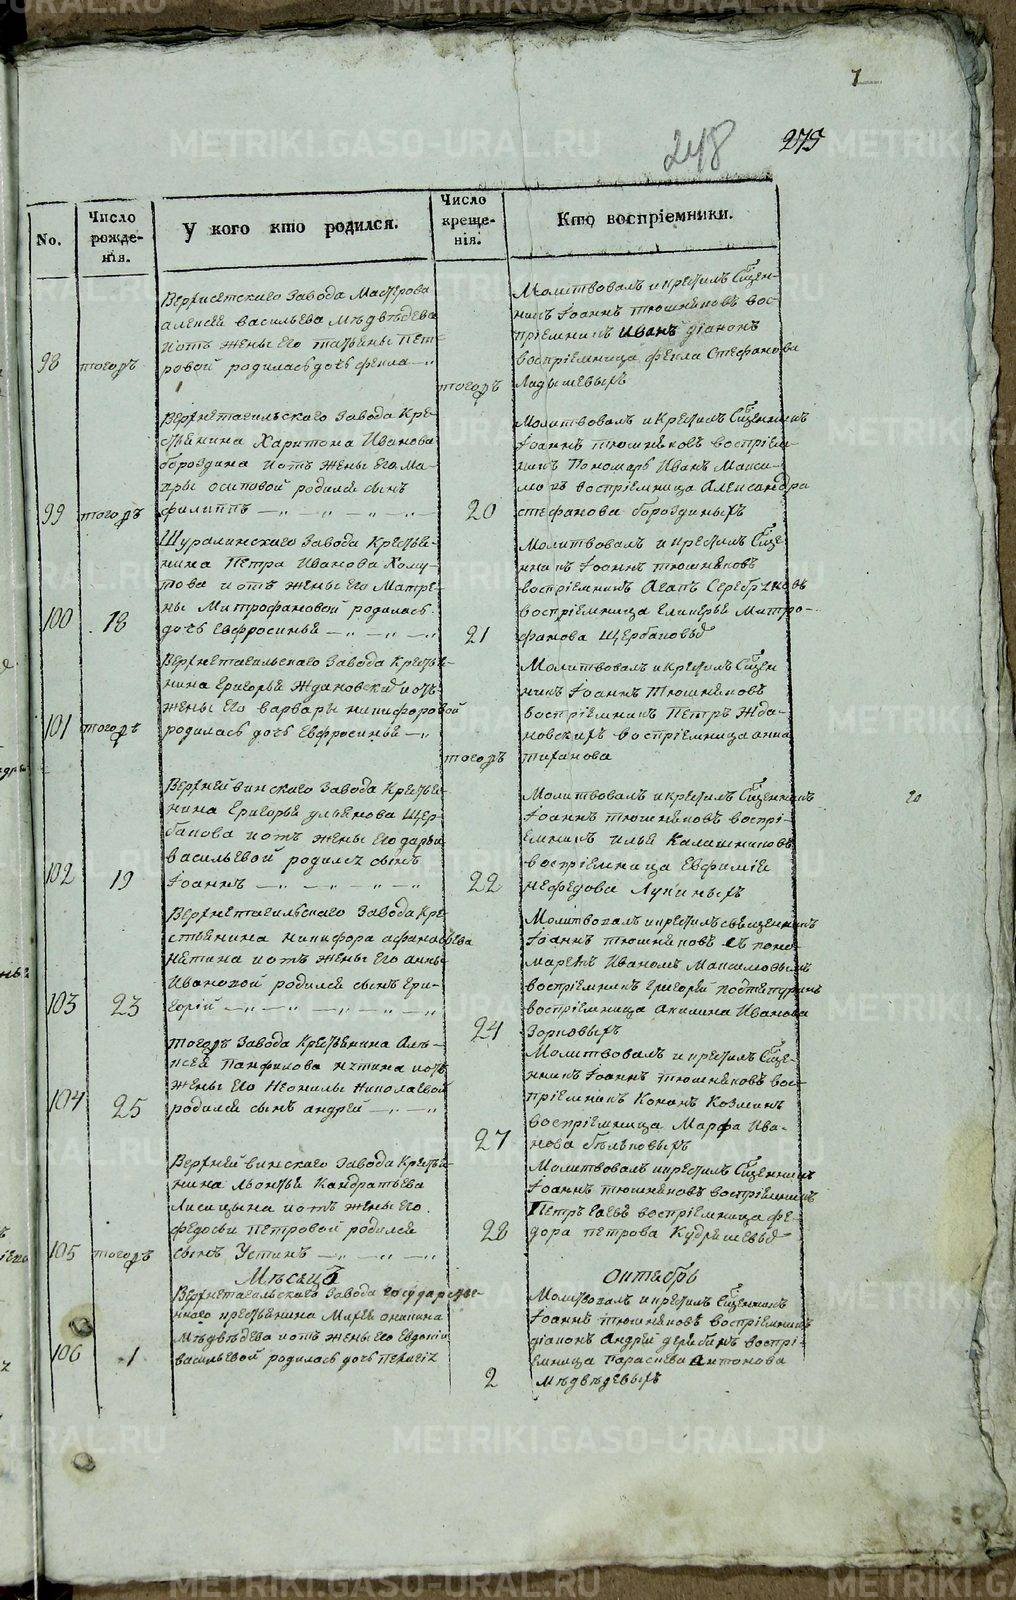 1
248
275
No.
Число рожде-нія.
У кого кто родился.
Число креще-нія.
Кто воспріемники.
Верхисетскаго Завода Мастерова
алексея васильева Мѣдвѣдева
иотъ жены его татьяны Пет-
98 тогожъ ровой родиласьдочь фекла
Молитвовалъ и крестилъ Сщен-
никъ Іоаннъ тюшняковъ вос-
пріемникъ Иванъ діаконъ
воспріемница фекла Стефанова
тогожъ Ладышевыхъ
Верхнетагильскаго Завода Кре-
стьянина Харитона Иванова
бороздина иотъ жены Его Ма-
ары осиповой родился сынъ
99 тогожъ филиппъ
Молитвовалъ и Крестилъ Сщенникъ
Іоаннъ тюшняковъ воспріем-
никъ Пономарь Иванъ Макси-
мовъ воспріемница Александра
20 стефанова бороздиныхъ
Шуралинскаго Завода Крестья-
нина Петра Иванова Хому-
това иотъ жены его Матре-
ны Митрофановой родилась
100 18 дочь Евфросинья
Молитвовалъ и крестилъ Сще-
нникъ Іоаннъ тюшняковъ
воспріемникъ Агапъ Серебряковъ
воспріемница Гликерья Митро-
21 фанова Щербаковыхъ
Верхнетагильскаго Завода Крестья-
нина Григорья Ждановскаго иотъ
жены Его варвары никифоровой
101 тогожъ родилась дочь Евфросинья
Молитвовалъ и крестилъ Сщен
никъ Іоаннъ Тюшняковъ
воспріемникъ Петръ Жда-
новскихъ воспріемница анна
тогожъ титанова
Верхнейвинскаго Завода Крестья-
нина Григорья ульянова Щер-
бакова иотъ жены Его дарьи
васильевой родился сынъ
102 19 Іоаннъ
Молитвовалъ и крестилъ Сщенникъ
Іоаннъ тюшняковъ воспрі-
емникъ илья Калашниковъ
воспріемница Евфимія
22 нефедова Лукиныхъ
20
Верхнетагильскаго Завода Кре-
стьянина никифора афанасьева
нятина иотъ жены Его анны
Ивановой родился сынъ Гри-
103 23 горій
Молитвовалъ и крестилъ священникъ
Іоаннъ тюшняковъ съ поно-
маремъ Иваномъ Максимовымъ
воспріемникъ Григорей
воспріемница акилина Иванова
24 Зорковыхъ
тогожъ Завода Крестьянина Але-
ксея Панфилова нятина иотъ
жены Его Неонилы Николаевой
104 25 родился сынъ андрей
Молитвовалъ и крестилъ Сще-
нникъ Іоаннъ тюшняковъ вос-
пріемникъ Кононъ Козминъ
воспріемница Марфа Ива-
27 нова бѣльковыхъ
Верхнейвинскаго Завода Крестья-
нина Леонтья Кандратьева
Лисицына иотъ жены Его
федосьи Петровой родился
105 тогожъ сынъ Устинъ
Молитвовалъ и крестилъ Сщенникъ
Іоаннъ тюшняковъ воспріемникъ
Петръ воспріемница фе-
28 дора петрова Кудряшевыхъ
Мѣсяцъ октябрь
Верхнетагильскаго Завода государстве-
ннаго крестьянина Марка
Мѣдвѣдева иотъ жены Его Евдокіи
106 1 васильевой родилась дочь Пелагія
Молитвовалъ и крестилъ Сщенникъ
Іоаннъ тюшняковъ воспріемникъ
діаконъ Андрей дерябинъ воспрі-
емница Параскева антонова
2 Мѣдвѣдевыхъ